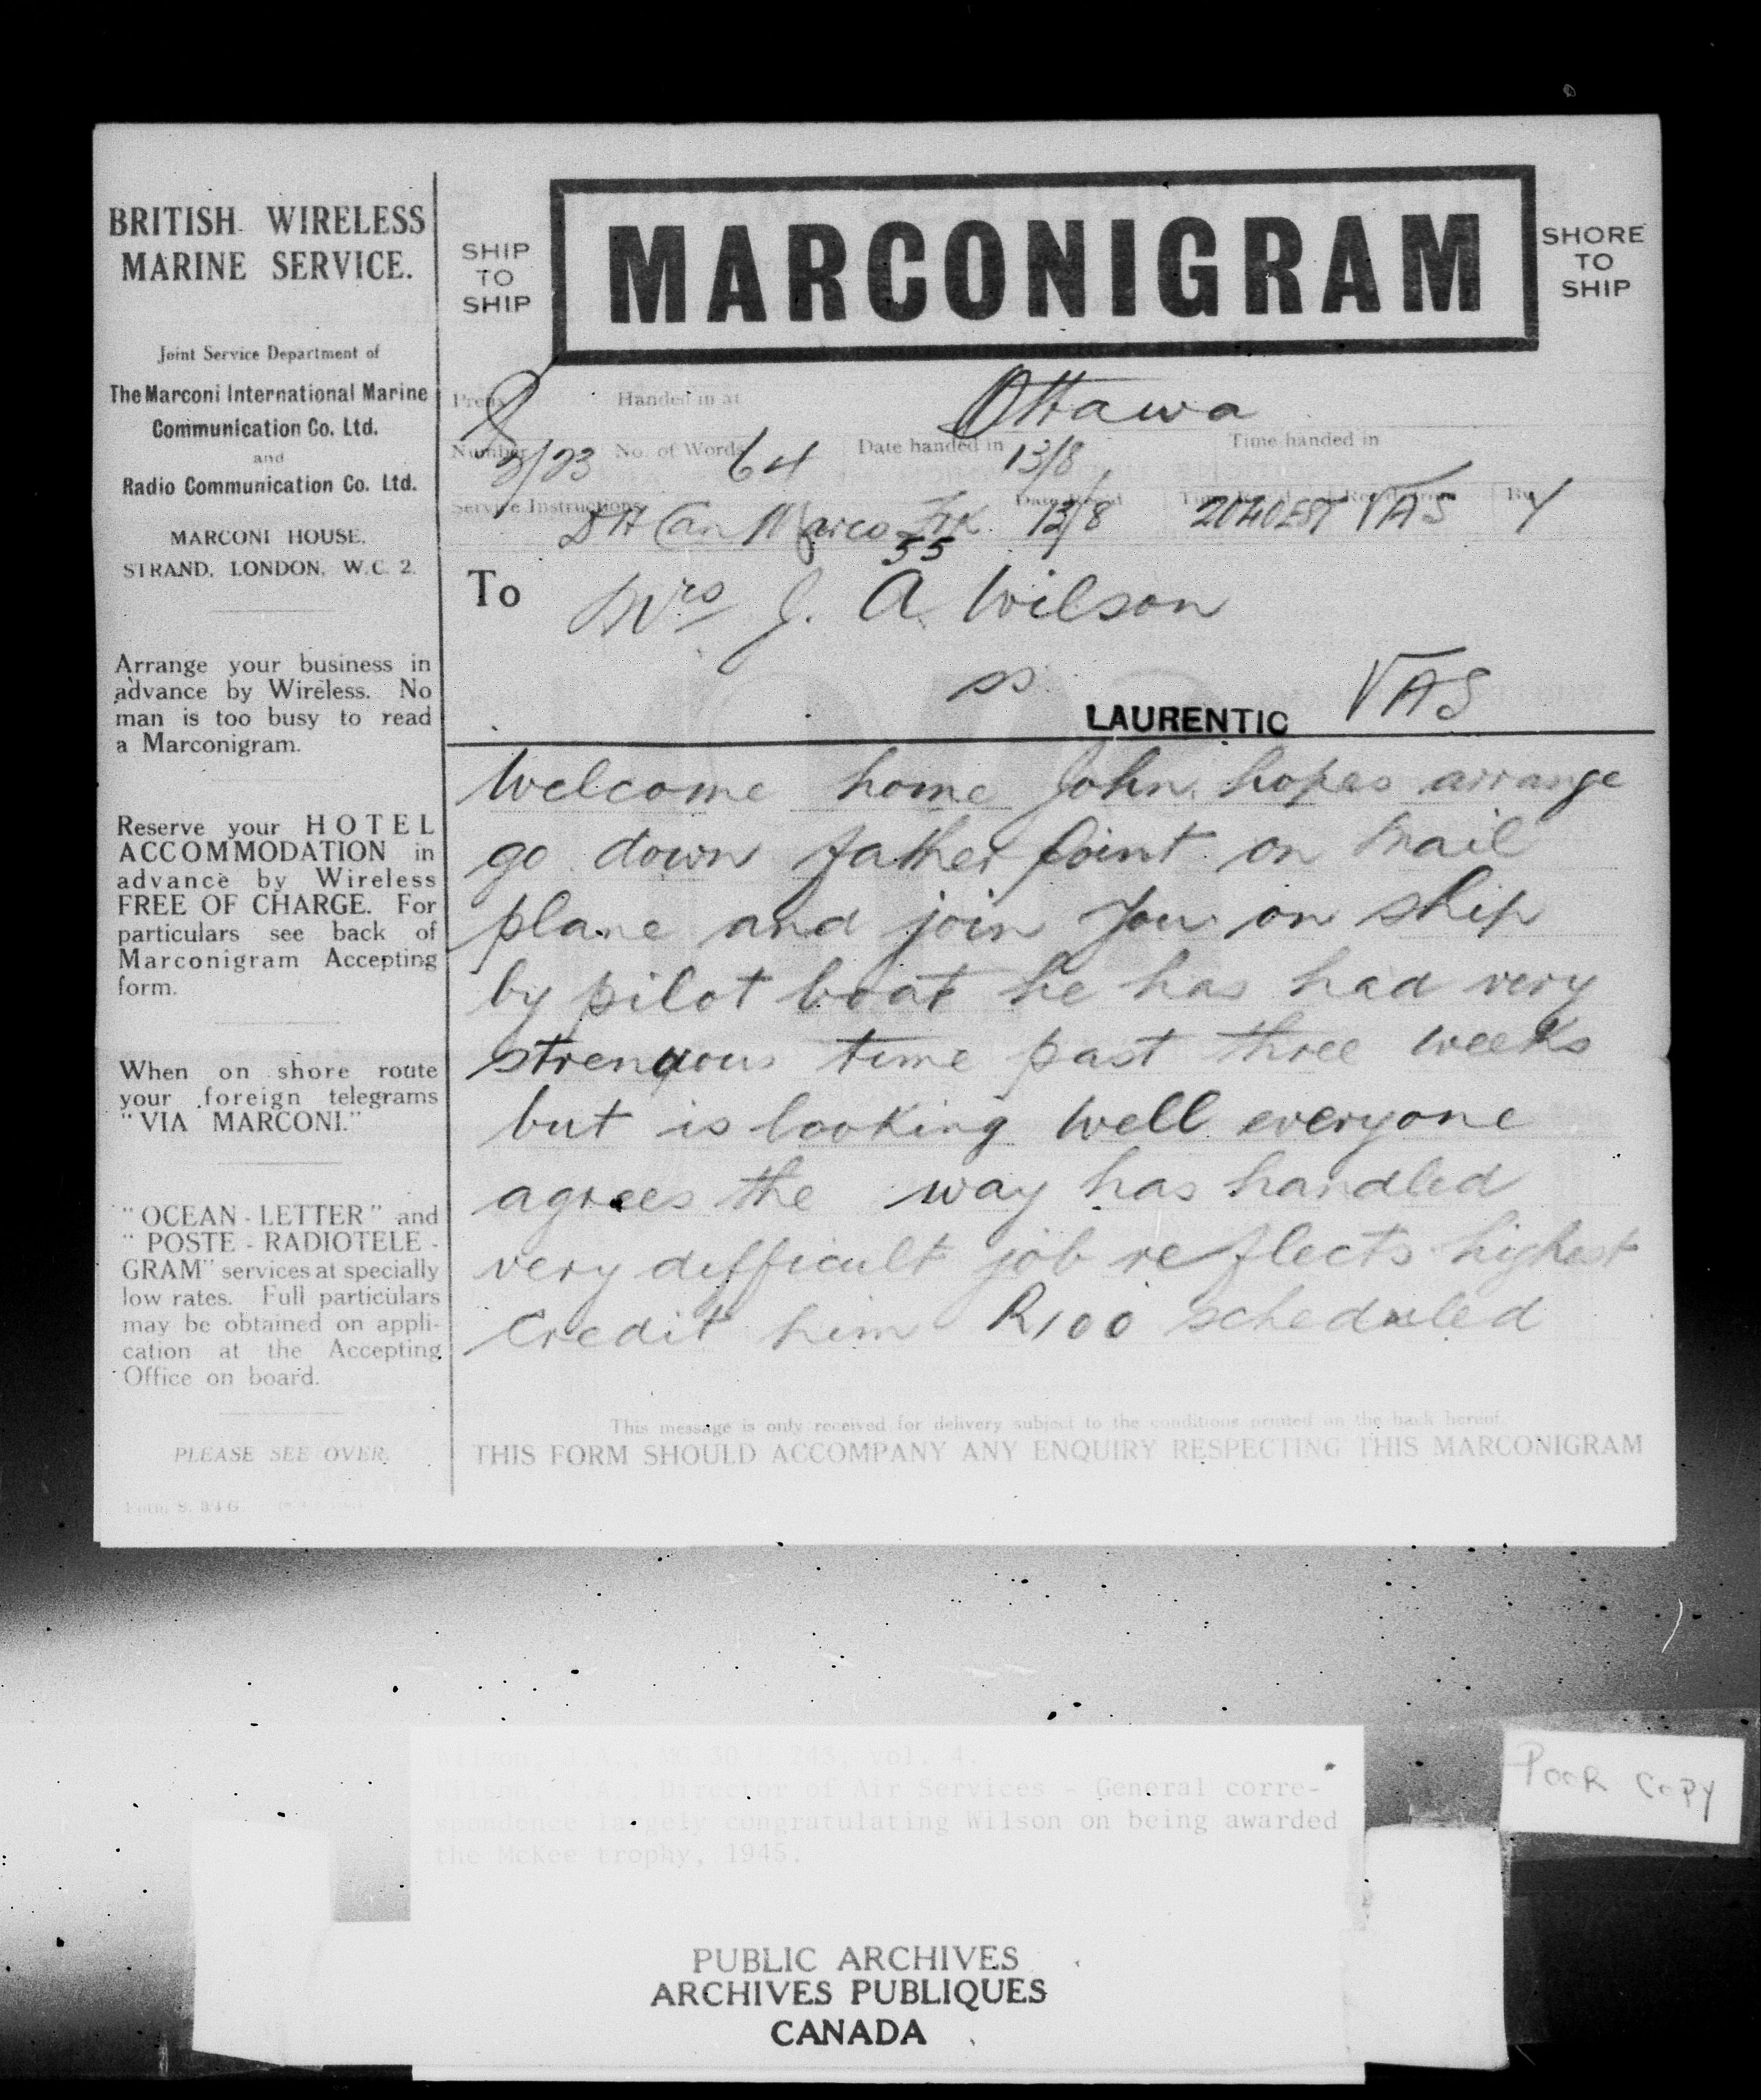 BRITISH WIRELESS
MARINE SERVICE.
Joint Service Department of
The Marconi International Marine
Communication Co. Ltd.
and
Radio Communication Co. Ltd.
MARCONI HOUSE,
STRAND, LONDON, W.C. 2.
Arrange your business in
advance by Wireless. No
man is too busy to read
a Marconigram.
Reserve your HOTEL
ACCOMMODATION in
advance by Wireless
FREE OF CHARGE. For
particulars see back of
Marconigram Accepting
form.
When on shore route
your foreign telegrams
"VIA MARCONI."
"OCEAN-LETTER" and
"POSTE-RADIOTELE-
GRAM" services at specially
low rates. Full particulars
may be obtained on appli-
cation at the Accepting
Office on board.
PLEASE SEE OVER.
SHIP
TO
SHIP
MARCONIGRAM
SHORE
TO
SHIP
Prefix Handed in at Ottawa
Number No. of Words 64 Date handed in 13/8 Time handed in
Service Instructions Marco Date Rec'd 13/8 2040EST VAS By
55
To Mrs J. A. Wilson
ss LAURENTIC VAS
Welcome home John hopes arrange
go down father point on mail
plane and join you on ship
by pilot boat he has had very
strenuous time past three weeks
but is looking well everyone
agrees the way has handled
very difficult job reflects highest
credit him R100 scheduled
This message is only received for delivery subject to the conditions printed on the back hereof.
THIS FORM SHOULD ACCOMPANY ANY ENQUIRY RESPECTING THIS MARCONIGRAM
Wilson, J.A., MG 30 E 243, vol. 4.
Wilson, J.A., Director of Air Services - General corre-
spondence largely congratulating Wilson on being awarded
the McKee trophy, 1945.
POOR COPY
PUBLIC ARCHIVES
ARCHIVES PUBLIQUES
CANADA